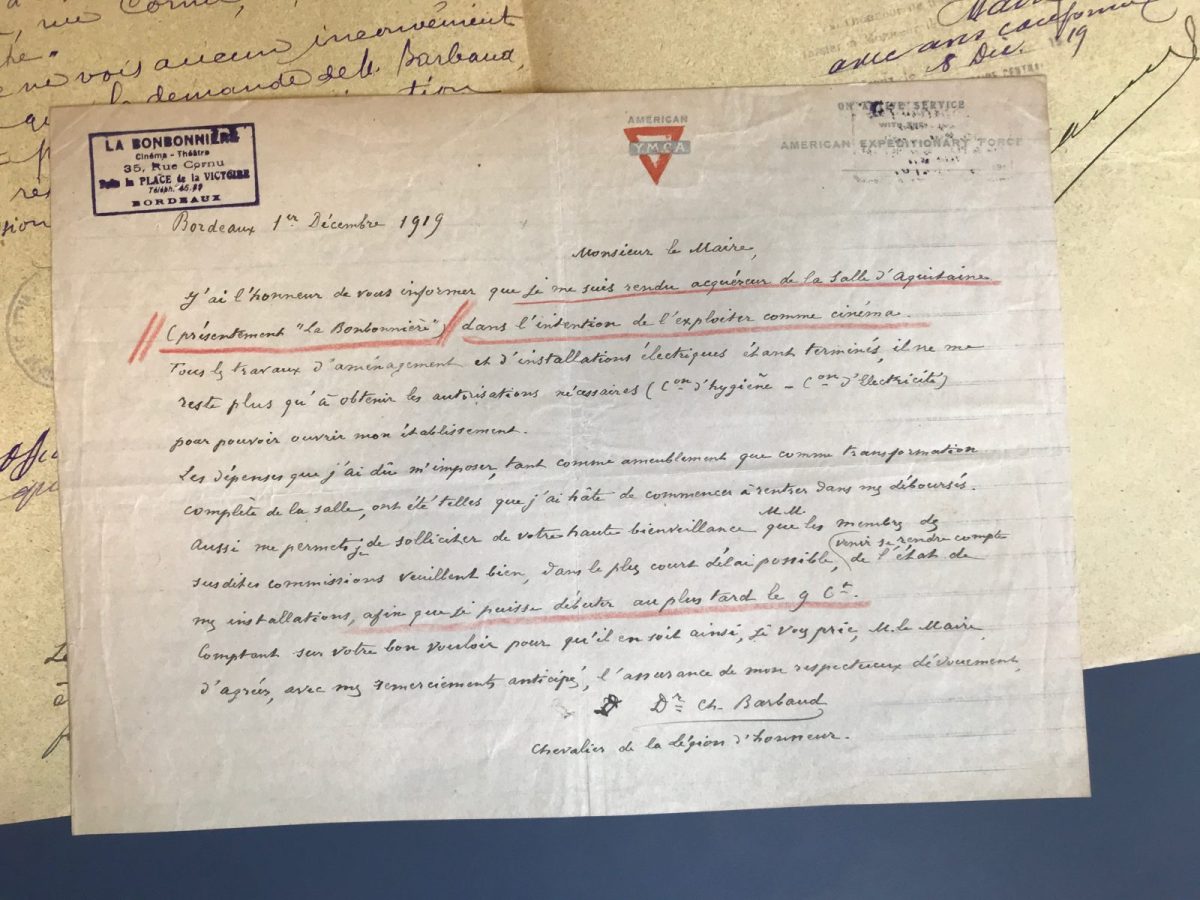 rue Cornu,
ne vois aucun inconvénient
la demande de M. Barbaud,
avec avis conforme
8 Déc. 19
LA BONBONNIÈRE
Cinéma - Théâtre
35, Rue Cornu
Près la PLACE de la VICTOIRE
Téléph.
BORDEAUX
AMERICAN
Y.M.C.A
ON ACTIVE SERVICE
WITH THE
AMERICAN EXPEDITIONARY FORCE
Bordeaux 1er Décembre 1919
Monsieur le Maire,
J'ai l'honneur de vous informer que je me suis rendu acquéreur de la Salle d'Aquitaine
(présentement "La Bonbonnière") dans l'intention de l'exploiter comme cinéma.
Tous les travaux d'aménagement et d'installations électriques étant terminés, il ne me
reste plus qu'à obtenir les autorisations nécessaires (Con d'hygiène - Con d'Electricité)
pour pouvoir ouvrir mon établissement.
Les dépenses que j'ai dû m'imposer, tant comme ameublement que comme transformation
complète de la salle, ont été telles que j'ai hâte de commencer à rentrer dans mes déboursés.
Aussi me permets je de solliciter de votre haute bienveillance que M.M. les membres des
susdites commissions veuillent bien, dans le plus court délai possible, venir se rendre compte de l'état de
mes installations, afin que je puisse débuter au plus tard le 9 Ct.
Comptant sur votre bon vouloir pour qu'il en soit ainsi, je vous prie, M. le Maire,
d'agréer, avec mes remerciements anticipés, l'assurance de mon respectueux dévouement,
Dr Ch. Barbaud
Chevalier de la Légion d'honneur.